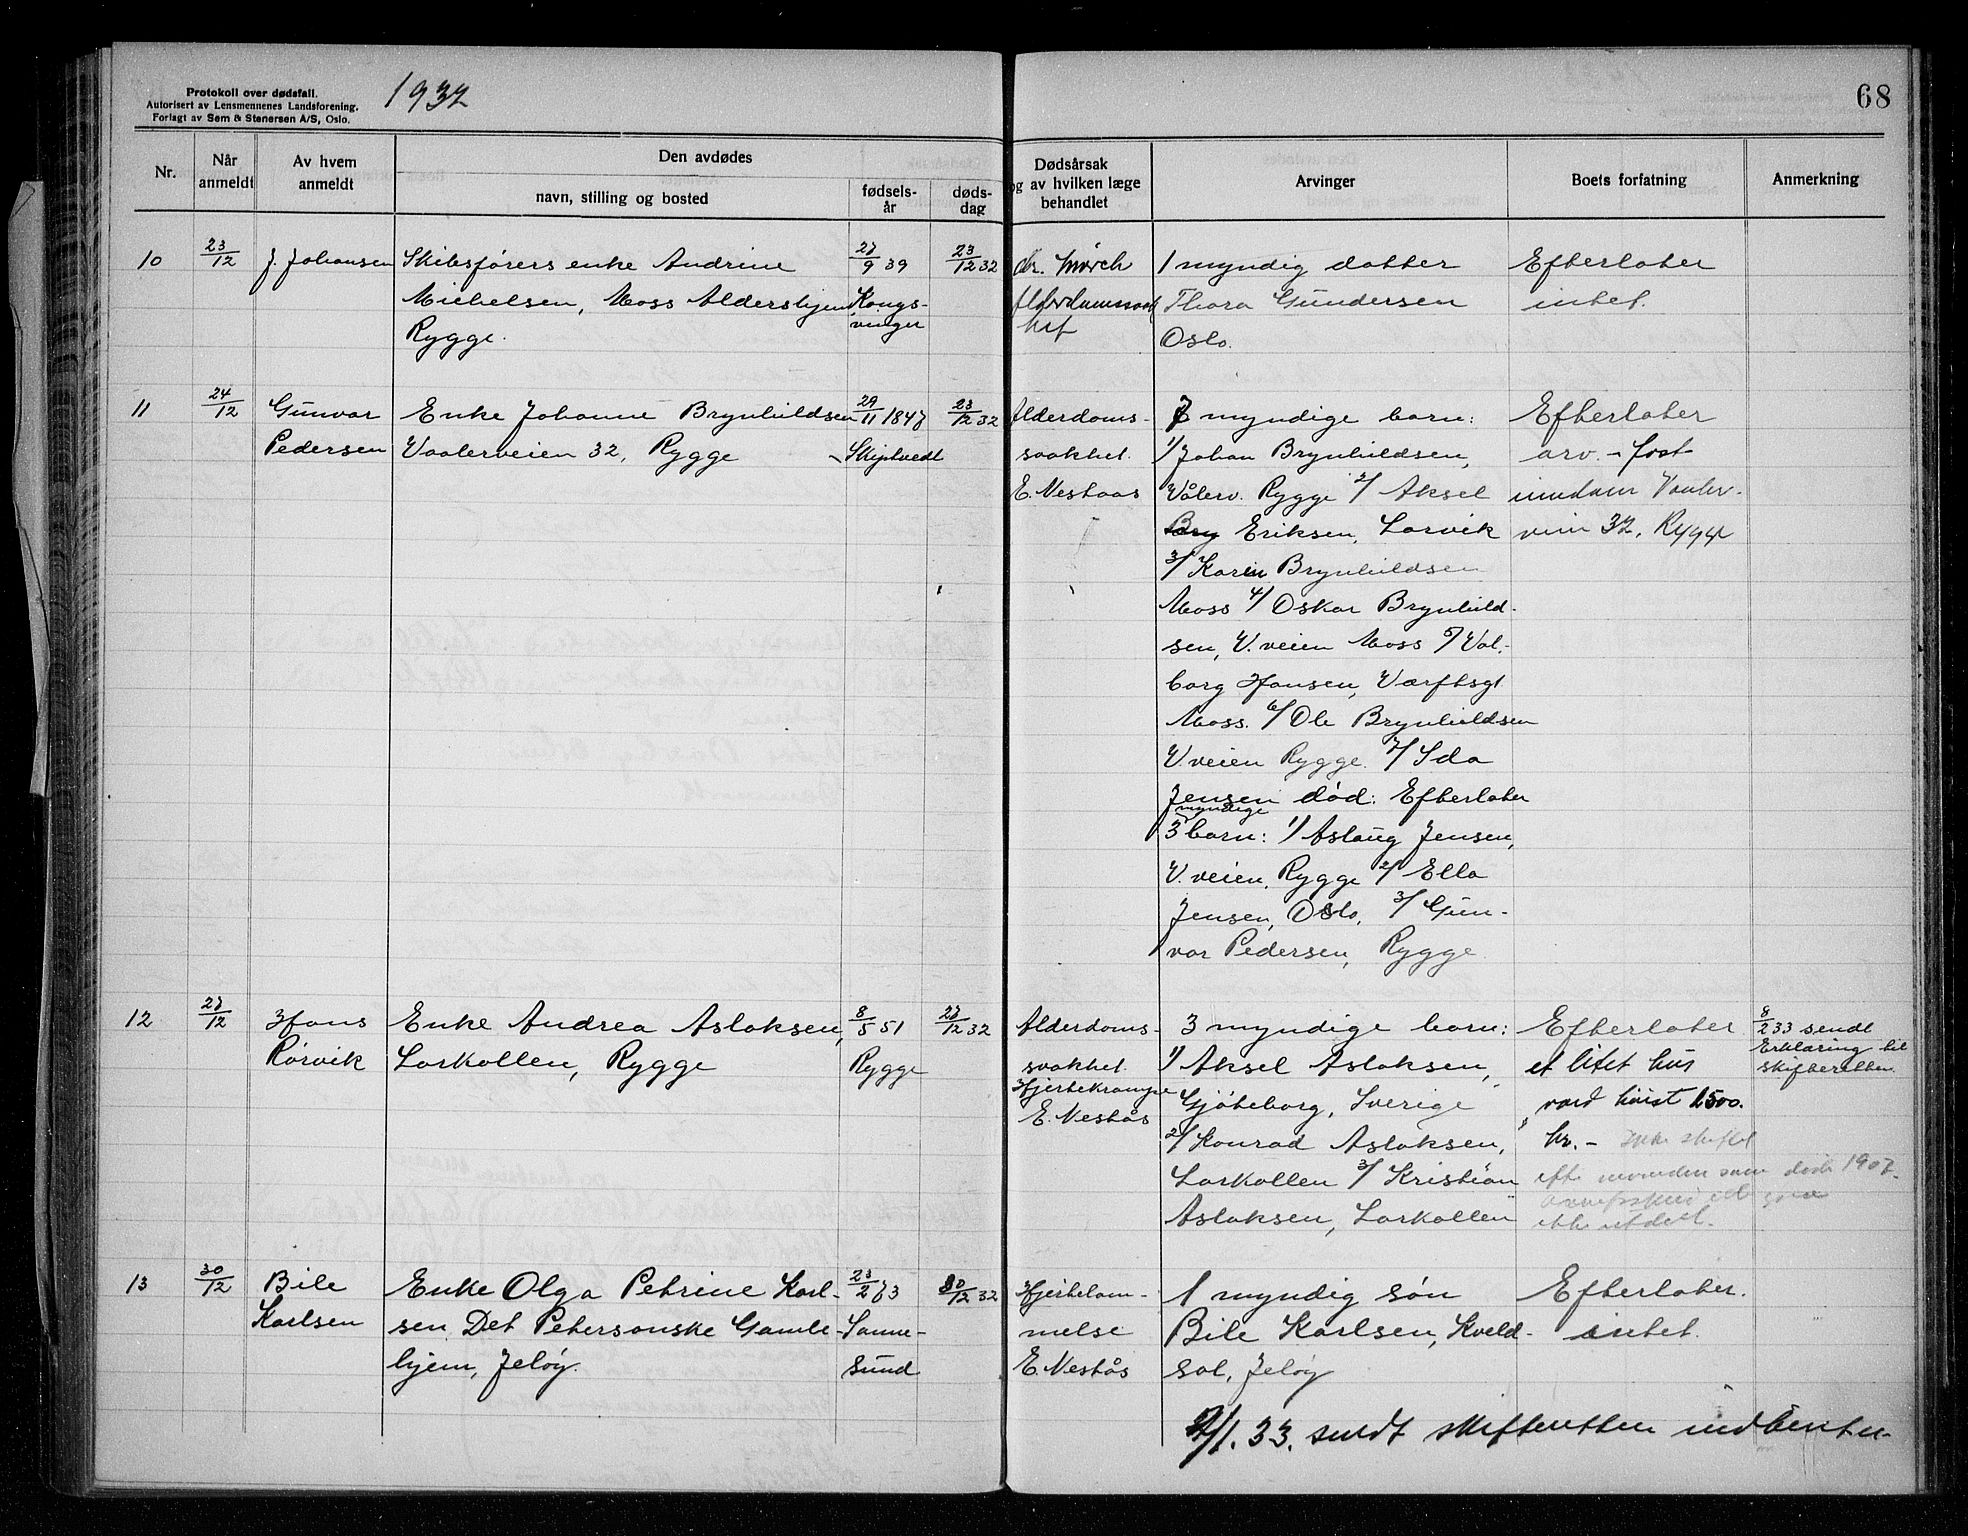 Protokoll over dødsfall.
Autorisert av Lensmennenes Landsforening.
Forlagt av Sem & Stenersen A/S, Oslo.
1932
68
Nr.
Når anmeldt
Av hvem anmeldt
Den avdødes
navn, stilling og bosted
fødsels-år
døds-dag
Dødsårsak
og av hvilken læge
behandlet
Arvinger
Boets forfatning
Anmerkning
10
23/12
J. Johansen
Skibsførers enke Andrine
Michelsen, Moss Aldershjem
Rygge.
27/9 39
Kongs-
vinger
23/12 32
dr. Mørch
Alderdomssvak
het
1 myndig datter
Thora Gundersen
Oslo.
Efterlater
intet.
11
24/12
Gunvor
Pedersen
Enke Johanne Brynhildsen
Vaalerveien 32, Rygge
29/11 1847
Skiptvedt
23/12 32
Alderdoms-
svakhet
E. Nestaas
7 myndige barn:
1/ Johan Brynhildsen,
Vålerv. Rygge 2/ Aksel
Bry Eriksen, Larvik
3/ Karin Brynhildsen
Moss 4/ Oskar Brynhild-
sen, V. veien Moss 5/ Val-
borg Hansen, Værftsgt
Moss. 6/ Ole Brynhildsen
V. veien Rygge. 7/ Ida
Jensen død: Efterlater
myndige
3 barn: 1/ Aslaug Jensen,
V. veien, Rygge 2/ Ella
Jensen, Oslo, 3/ Gun-
vor Pedersen, Rygge
Efterlater
arv. - fast
eiendom Vaaler-
veien 32, Rygge
12
27/12
Hans
Rørvik
Enke Andrea Aslaksen,
Larkollen, Rygge
8/5 51
Rygge
27/12 32
Alderdoms-
svakhet
Hjertekrampe
E. Nestås
3 myndige barn:
1/ Aksel Aslaksen,
Gjøteborg, Sverige
2/ Konrad Aslaksen,
Larkollen 3/ Kristian
Aslaksen, Larkollen
Efterlater
et litet hus
verd høist 1500.
kr. - Ikke skiftet
efter manden som døde 1907.
ikke utdelt.
8/2 33 sendt
Erklæring til
skifteretten.
13
30/12
Bile
Karlsen
Enke Olga Petrine Karl-
sen Det Petersonske Gamle-
hjem, Jeløy.
23/2 63
Sanne-
sund
30/12 32
Hjertelam-
melse
E. Nestås
1 myndig søn
Bile Karlsen, Kveld-
sol, Jeløy
Efterlater
intet.
2/1. 33. sendt skifteretten indberetn-